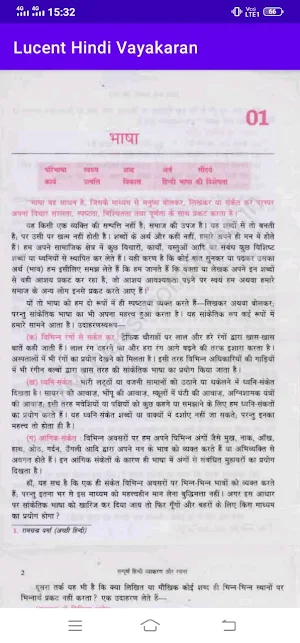 4G 4G 15:32 Vo) LTE1 66
Lucent Hindi Vayakaran
01
भाषा
परिभाषा स्वरूप शब्द अर्थ सौंदर्य
कार्य उत्पत्ति विकास हिन्दी भाषा की विशेषता
'भाषा वह साधन है, जिसके माध्यम से मनुष्य बोलकर, लिखकर या संकेत कर परस्पर
अपना विचार सरलता, स्पष्टता, निश्चितता तथा पूर्णता के साथ प्रकट करता है।'
यह किसी एक व्यक्ति की सम्पत्ति नहीं है, समाज की उपज है। यह शब्दों से तो बनती
है, पर उसी पर खत्म नहीं होती है। शब्दों के अर्थ और कहीं नहीं, हमारे अपने ही मन में होते
हैं। हम अपने सामाजिक क्षेत्र में कुछ विचारों, कार्यों, वस्तुओं आदि का संबंध कुछ विशिष्ट
शब्दों या ध्वनियों से स्थापित कर लेते हैं। यही कारण है कि कोई बात सुनकर या पढ़कर उसका
अर्थ (भाव) हम इसीलिए समझ लेते हैं कि हम जानते हैं कि वक्ता या लेखक अपने इन शब्दों
से वही आशय प्रकट कर रहा है, जो आशय आवश्यकता पड़ने पर स्वयं हम अथवा हमारे
समाज के अन्य लोग इनसे प्रकट करते आए हैं।
यों तो भाषा को हम दो रूपों में ही स्पष्टतया व्यक्त करते हैं—लिखकर अथवा बोलकर;
परन्तु सांकेतिक भाषा का भी अपना महत्त्व हुआ करता है। यह सांकेतिक रूप कई रूपों में
हमारे सामने आता है। उदाहरणस्वरूप—
(क) विभिन्न रंगों से संकेत कर: ट्रैफिक चौराहों पर लाल और हरे रंगों द्वारा खास-खास
बातें कही जाती हैं। लाल रंग ठहरने का और हरा रंग आगे बढ़ने की तरफ इशारा करता है।
अस्पतालों में भी रंगों का प्रयोग देखने को मिलता है। इसी तरह विभिन्न अधिकारियों की गाड़ियों
में भी रंगीन बल्बों द्वारा खास तरह की सांकेतिक भाषा का प्रयोग किया जाता है।
(ख) ध्वनि-संकेत: भारी लट्ठों या वजनी सामानों को उठाने या धकेलने में ध्वनि-संकेत
दिखता है। सायरन की आवाज, भोंपू की आवाज, स्कूलों में घंटी की आवाज, अग्निशामक यंत्रों
की आवाज, इसी तरह मवेशियों या पक्षियों को कुछ कहने या समझाने के लिए हम ध्वनि-संकेतों
का प्रयोग करते हैं। यह ध्वनि-संकेत शब्दों या वाक्यों में दर्शाए नहीं जा सकते, परन्तु इनका
महत्त्व तो होता ही है।
(ग) आंगिक-संकेत: विभिन्न अवसरों पर हम अपने विभिन्न अंगों जैसे मुख, नाक, आँख,
हाथ, ओठ, गर्दन, उँगली आदि द्वारा अपने मन के भाव को व्यक्त करते हैं या अभिव्यक्ति से
अवगत होते हैं। इन आंगिक संकेतों के कारण ही भाषा में अंगों से संबंधित मुहावरों का प्रयोग
दिखता है।
हाँ, यह सच है कि एक ही संकेत विभिन्न अवसरों पर भिन्न-भिन्न भावों को व्यक्त करते
हैं; परन्तु इतना भर से इस माध्यम को महत्त्वहीन मान लेना बुद्धिमत्ता नहीं। अगर इस आधार
पर सांकेतिक भाषा को खारिज कर दिया जाय तो फिर गूँगों और बहरों के लिए किस माध्यम
का प्रयोग होगा?
1. रामचन्द्र वर्मा (अच्छी हिन्दी)
2 सम्पूर्ण हिन्दी व्याकरण और रचना
दूसरा तर्क यह भी है कि क्या लिखित या मौखिक कोई शब्द ही भिन्न-भिन्न स्थानों पर
भिन्नार्थ प्रकट नहीं करता? एक उदाहरण लेते हैं—